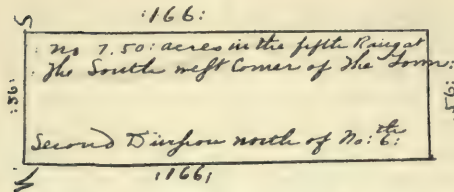 :166:
S
no 7.50: acres in the fifth Raing at
the South west Corner of the Town:
:56:
:56:
Second Division north of No: 6:th
W
:166: